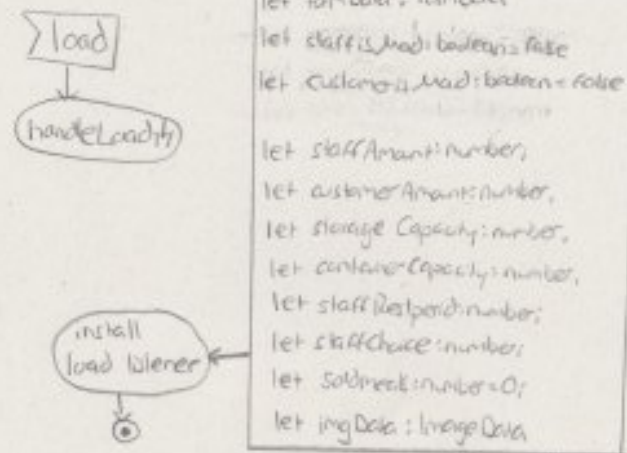 load
handleLoad
let staffisMad: boolean = false
let customerisMad: boolean = false
let staffAmount: number;
let customerAmount: number;
let storageCapacity: number;
let containerCapacity: number;
let staffRestperiod: number;
let staffChoice: number;
let soldmeals: number = 0;
let imgData: ImageData
install
load listener